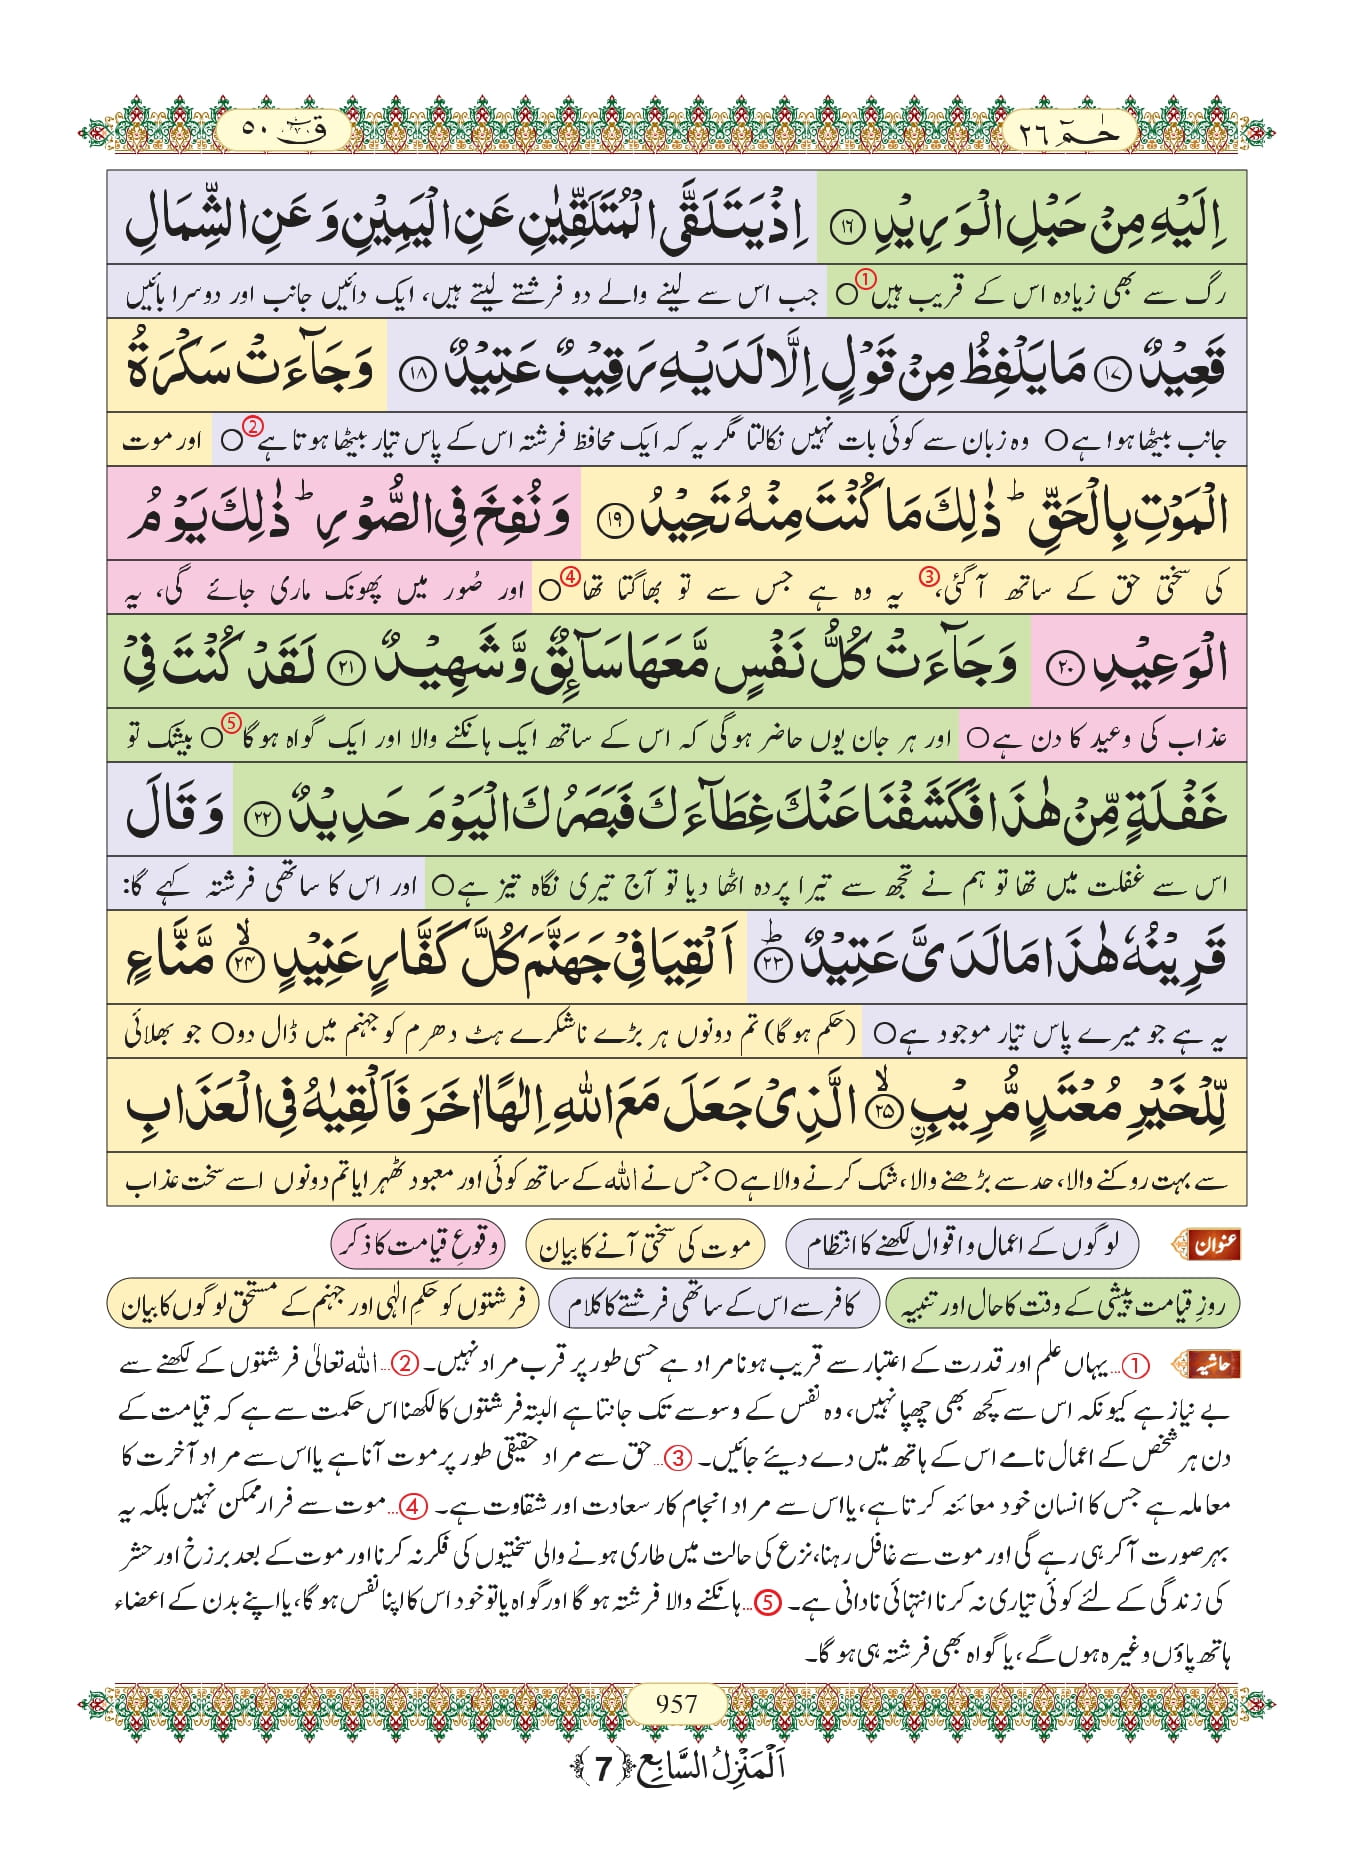 حٰمٓ ۲۶
قٓ ۵۰
اِلَیْهِ مِنْ حَبْلِ الْوَرِیْدِ ﴿۱۶﴾ اِذْ یَتَلَقَّی الْمُتَلَقِّیٰنِ عَنِ الْیَمِیْنِ وَ عَنِ الشِّمَالِ
رگ سے بھی زیادہ اس کے قریب ہیں①○ جب اس سے لینے والے دو فرشتے لیتے ہیں، ایک دائیں جانب اور دوسرا بائیں
قَعِیْدٌ ﴿۱۷﴾ مَا یَلْفِظُ مِنْ قَوْلٍ اِلَّا لَدَیْهِ رَقِیْبٌ عَتِیْدٌ ﴿۱۸﴾ وَ جَآءَتْ سَكْرَةُ
جانب بیٹھا ہوا ہے○ وہ زبان سے کوئی بات نہیں نکالتا مگر یہ کہ ایک محافظ فرشتہ اس کے پاس تیار بیٹھا ہوتا ہے②○ اور موت
الْمَوْتِ بِالْحَقِّؕ ذٰلِكَ مَا كُنْتَ مِنْهُ تَحِیْدُ ﴿۱۹﴾ وَ نُفِخَ فِی الصُّوْرِؕ ذٰلِكَ یَوْمُ
کی سختی حق کے ساتھ آگئی،③ یہ وہ ہے جس سے تو بھاگتا تھا④○ اور صُور میں پھونک ماری جائے گی، یہ
الْوَعِیْدِ ﴿۲۰﴾ وَ جَآءَتْ كُلُّ نَفْسٍ مَّعَهَا سَآىٕقٌ وَّ شَهِیْدٌ ﴿۲۱﴾ لَقَدْ كُنْتَ فِیْ
عذاب کی وعید کا دن ہے○ اور ہر جان یوں حاضر ہوگی کہ اس کے ساتھ ایک ہانکنے والا اور ایک گواہ ہوگا⑤○ بیشک تو
غَفْلَةٍ مِّنْ هٰذَا فَكَشَفْنَا عَنْكَ غِطَآءَكَ فَبَصَرُكَ الْیَوْمَ حَدِیْدٌ ﴿۲۲﴾ وَ قَالَ
اس سے غفلت میں تھا تو ہم نے تجھ سے تیرا پردہ اٹھا دیا تو آج تیری نگاہ تیز ہے○ اور اس کا ساتھی فرشتہ کہے گا:
قَرِیْنُهٗ هٰذَا مَا لَدَیَّ عَتِیْدٌؕ ﴿۲۳﴾ اَلْقِیَا فِیْ جَهَنَّمَ كُلَّ كَفَّارٍ عَنِیْدٍۙ ﴿۲۴﴾ مَّنَّاعٍ
یہ ہے جو میرے پاس تیار موجود ہے○ (حکم ہوگا) تم دونوں ہر بڑے ناشکرے ہٹ دھرم کو جہنم میں ڈال دو○ جو بھلائی
لِّلْخَیْرِ مُعْتَدٍ مُّرِیْبِۙﹰ ﴿۲۵﴾ الَّذِیْ جَعَلَ مَعَ اللّٰهِ اِلٰهًا اٰخَرَ فَاَلْقِیٰهُ فِی الْعَذَابِ
سے بہت روکنے والا، حد سے بڑھنے والا، شک کرنے والا ہے○ جس نے اللہ کے ساتھ کوئی اور معبود ٹھہرایا تم دونوں اسے سخت عذاب
عنوان لوگوں کے اعمال و اقوال لکھنے کا انتظام موت کی سختی آنے کا بیان وقوعِ قیامت کا ذکر
روزِ قیامت پیشی کے وقت کا حال اور تنبیہ کافر سے اس کے ساتھی فرشتے کا کلام فرشتوں کو حکمِ الٰہی اور جہنم کے مستحق لوگوں کا بیان
حاشیہ ①...یہاں علم اور قدرت کے اعتبار سے قریب ہونا مراد ہے حسی طور پر قرب مراد نہیں۔ ②...اللہ تعالیٰ فرشتوں کے لکھنے سے
بے نیاز ہے کیونکہ اس سے کچھ بھی چھپا نہیں، وہ نفس کے وسوسے تک جانتا ہے البتہ فرشتوں کا لکھنا اس حکمت سے ہے کہ قیامت کے
دن ہر شخص کے اعمال نامے اس کے ہاتھ میں دے دیئے جائیں۔ ③...حق سے مراد حقیقی طور پر موت آنا ہے یا اس سے مراد آخرت کا
معاملہ ہے جس کا انسان خود معائنہ کرتا ہے، یا اس سے مراد انجام کار سعادت اور شقاوت ہے۔ ④...موت سے فرار ممکن نہیں بلکہ یہ
بہرصورت آکر ہی رہے گی اور موت سے غافل رہنا، نزع کی حالت میں طاری ہونے والی سختیوں کی فکر نہ کرنا اور موت کے بعد برزخ اور حشر
کی زندگی کے لئے کوئی تیاری نہ کرنا انتہائی نادانی ہے۔ ⑤...ہانکنے والا فرشتہ ہوگا اور گواہ یا تو خود اس کا اپنا نفس ہوگا، یا اپنے بدن کے اعضاء
ہاتھ پاؤں وغیرہ ہوں گے، یا گواہ بھی فرشتہ ہی ہوگا۔
957
اَلْمَنْزِلُ السَّابِعِ ﴿7﴾